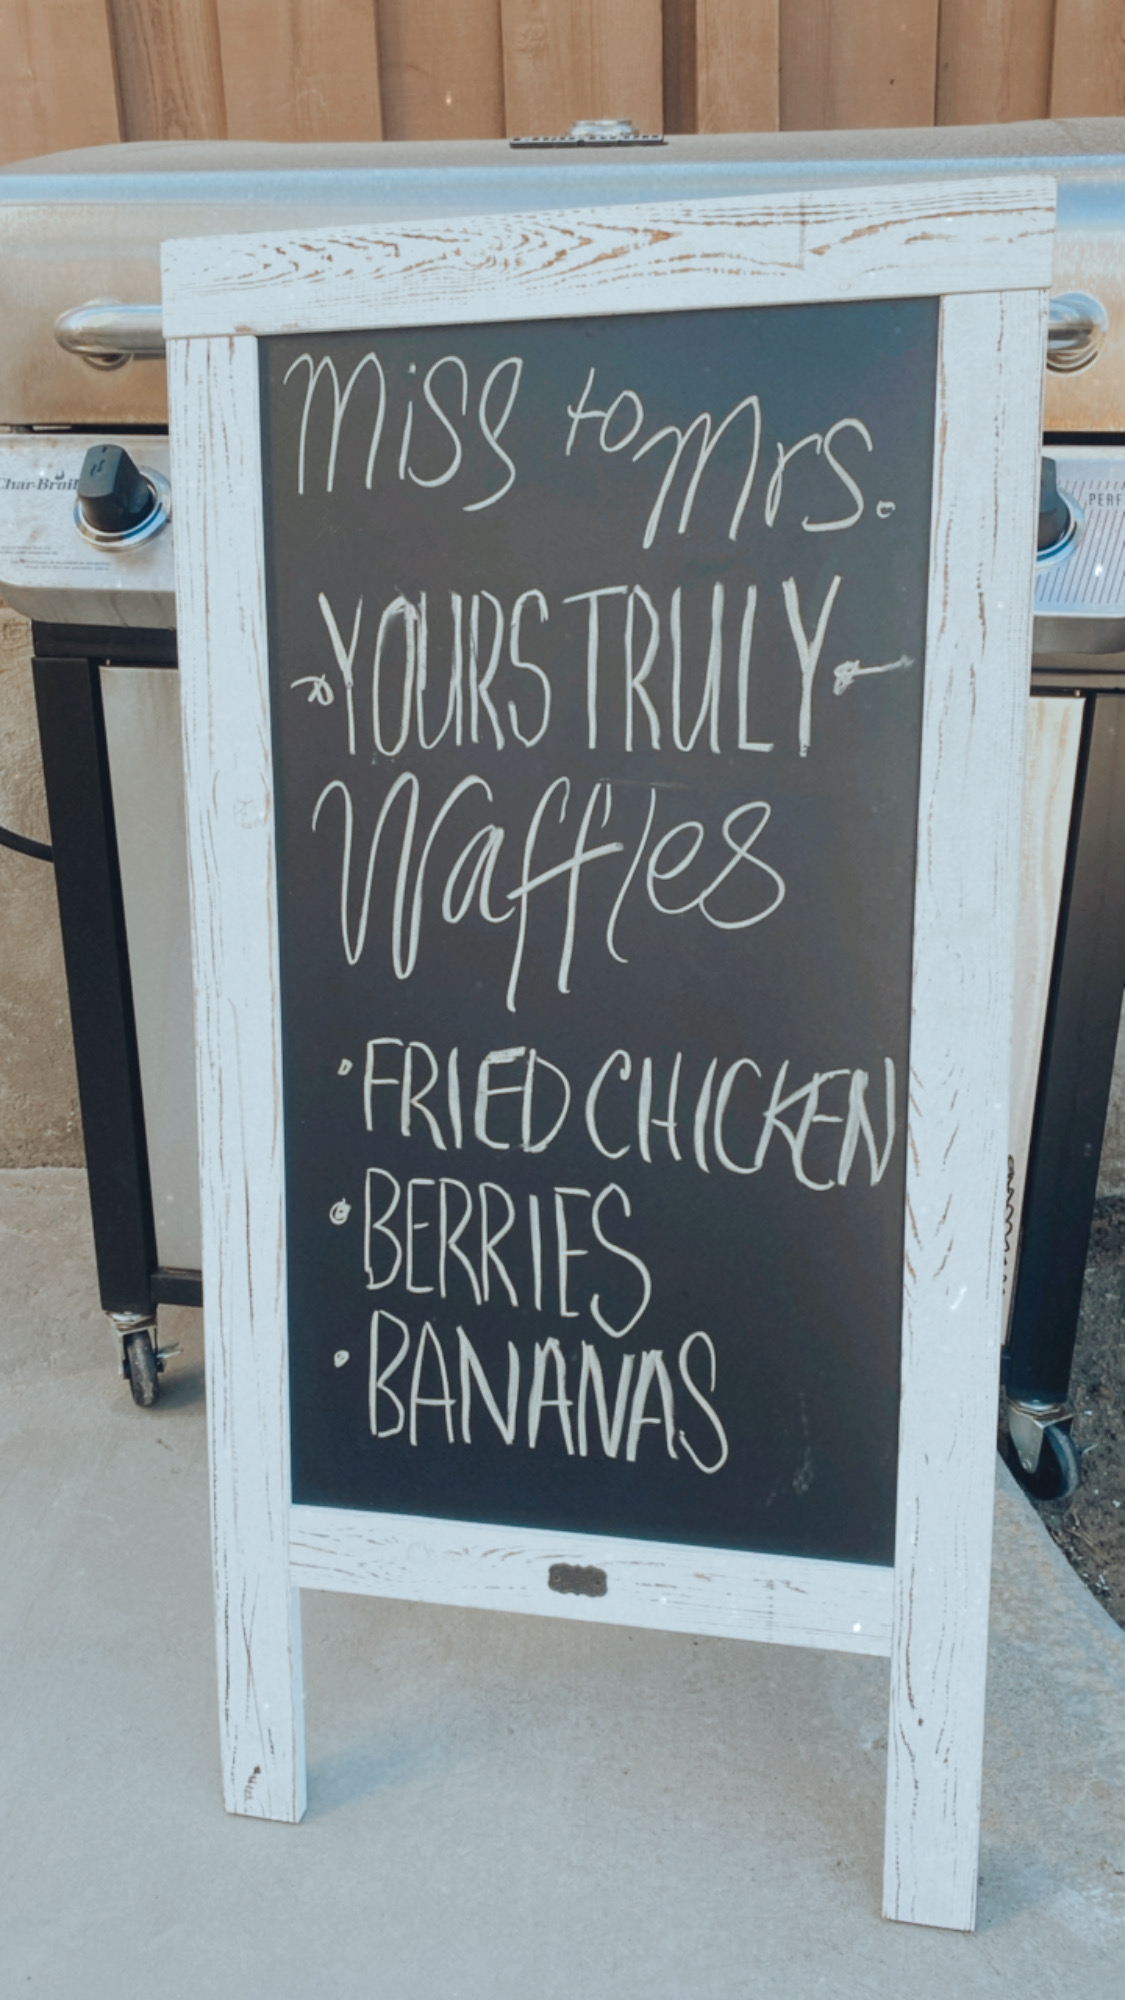 Miss to Mrs.
YOURS TRULY
Waffles
• FRIED CHICKEN
• BERRIES
• BANANAS
Char-Broil
PERF